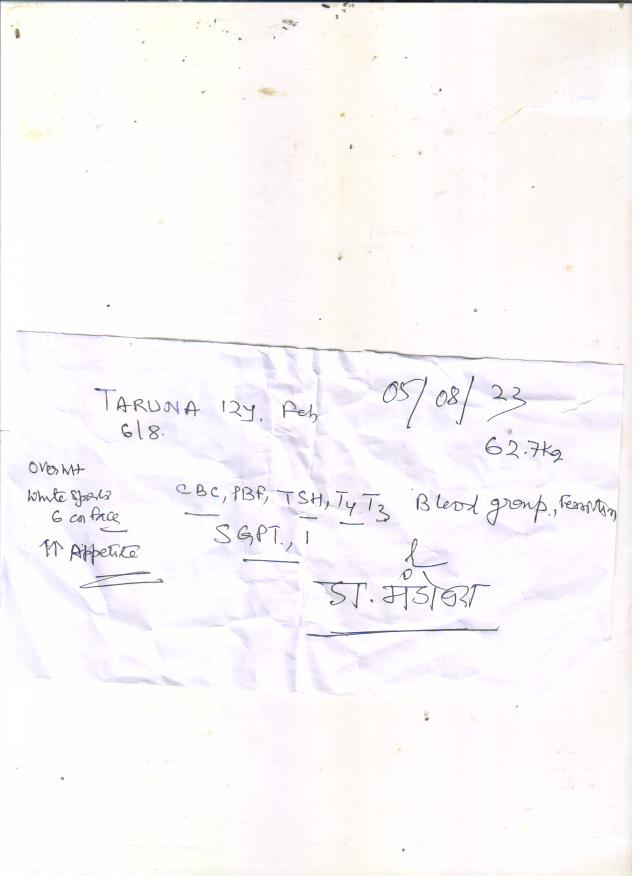 TARUNA 12y. Feh
05/08/23
6/8.
62.7kg
Overwt
White Spots
6 on face
↑↑ Appetite
CBC, PBF, TSH, T4 T3 Blood group,
SGPT,
डा.